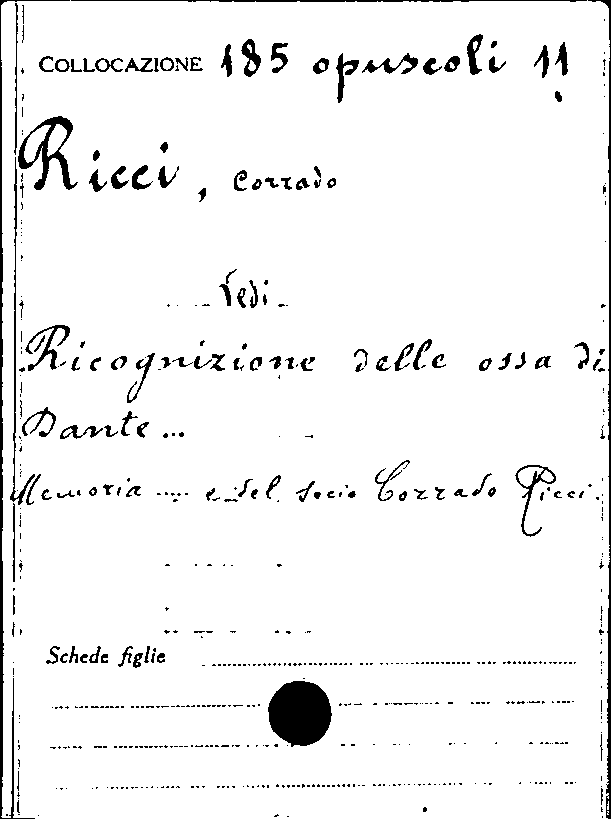 COLLOCAZIONE 185 opuscoli 11
Ricci, Corrado
Vedi
Ricognizione delle ossa di
Dante ...
Memoria ..... e del socio Corrado Ricci.
Schede figlie